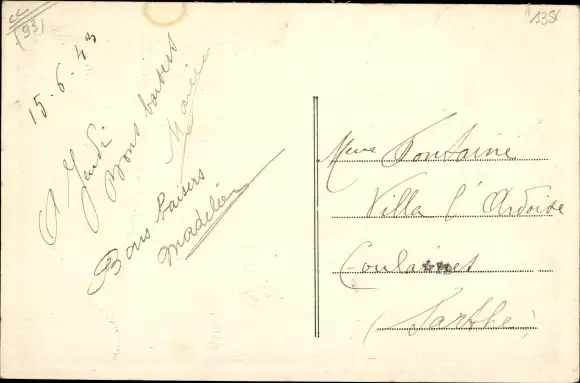 (93)
1356
15.6.43
A Jeudi
Bons baisers
Bons baisers
Madeleine
Fontaine
Villa l'Ardoise
Coulaines
(Sarthe)